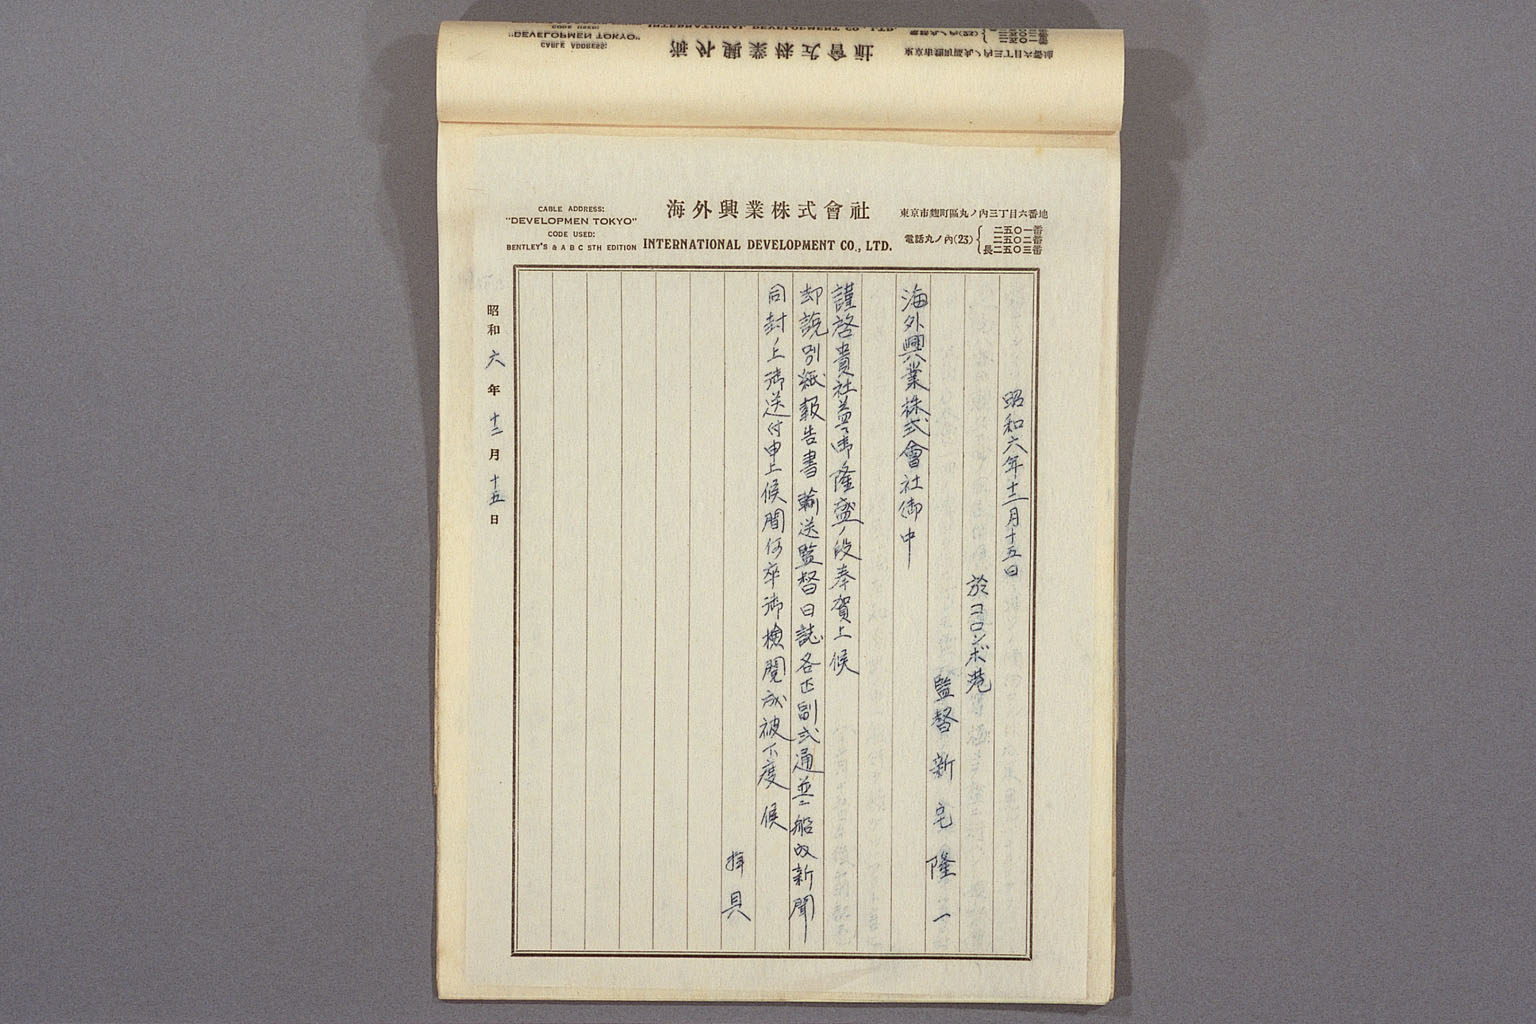 CABLE ADDRESS:
"DEVELOPMEN TOKYO"
CODE USED:
BENTLEY'S & A B C 5TH EDITION
海外興業株式會社
INTERNATIONAL DEVELOPMENT CO., LTD.
東京市麴町區丸ノ內三丁目六番地
電話丸ノ內(23)
二五〇一番
二五〇二番
長二五〇三番
昭和六年十二月十五日
於コロンボ港
監督 新宅隆一
海外興業株式會社御中
謹啓貴社益々御隆盛ノ段奉賀上候
却説別紙報告書輸送監督日誌各正副弐通並ニ船内新聞
同封ノ上御送付申上候間何卒御検閲成被下度候
拝具
昭和六年十二月十五日